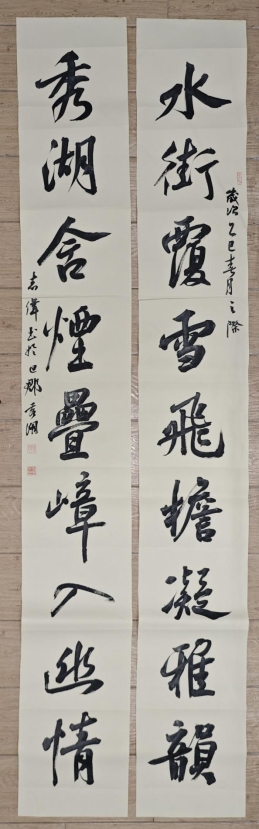 水街霞雪飛檐凝雅韻
歲次乙巳春月之際
秀湖含煙疊嶂入幽情
志偉書於巴郡秀湖